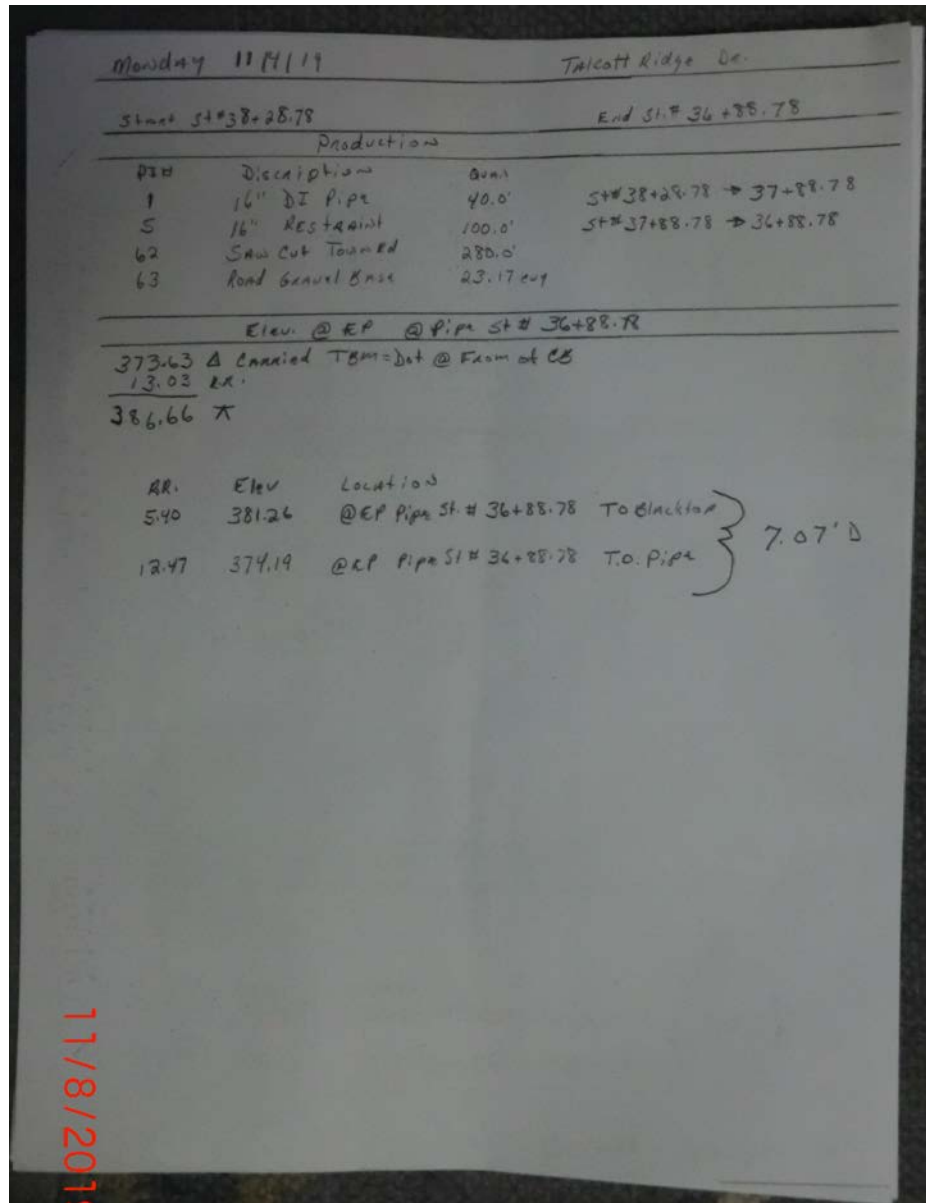 Monday 11/4/19 Talcott Ridge Dr.
Start St#38+28.78 End St.# 36+88.78
Production
PI# Discription Quan.
1 16" DI Pipe 40.0' St#38+28.78 → 37+88.78
5 16" Restraint 100.0' St#37+88.78 → 36+88.78
62 Saw Cut Town Rd 280.0'
63 Road Gravel Base 23.17 cuy
Elev. @ EP @ Pipe St # 36+88.78
373.63 Δ Carried TBM = Dot @ Fram of CB
13.03 RR.
386.66 ⊼
RR. Elev Location
5.40 381.26 @EP Pipe St. # 36+88.78 To Blacktop
7.07' D
12.47 374.19 @EP Pipe St # 36+88.78 T.O. Pipe
11/8/201